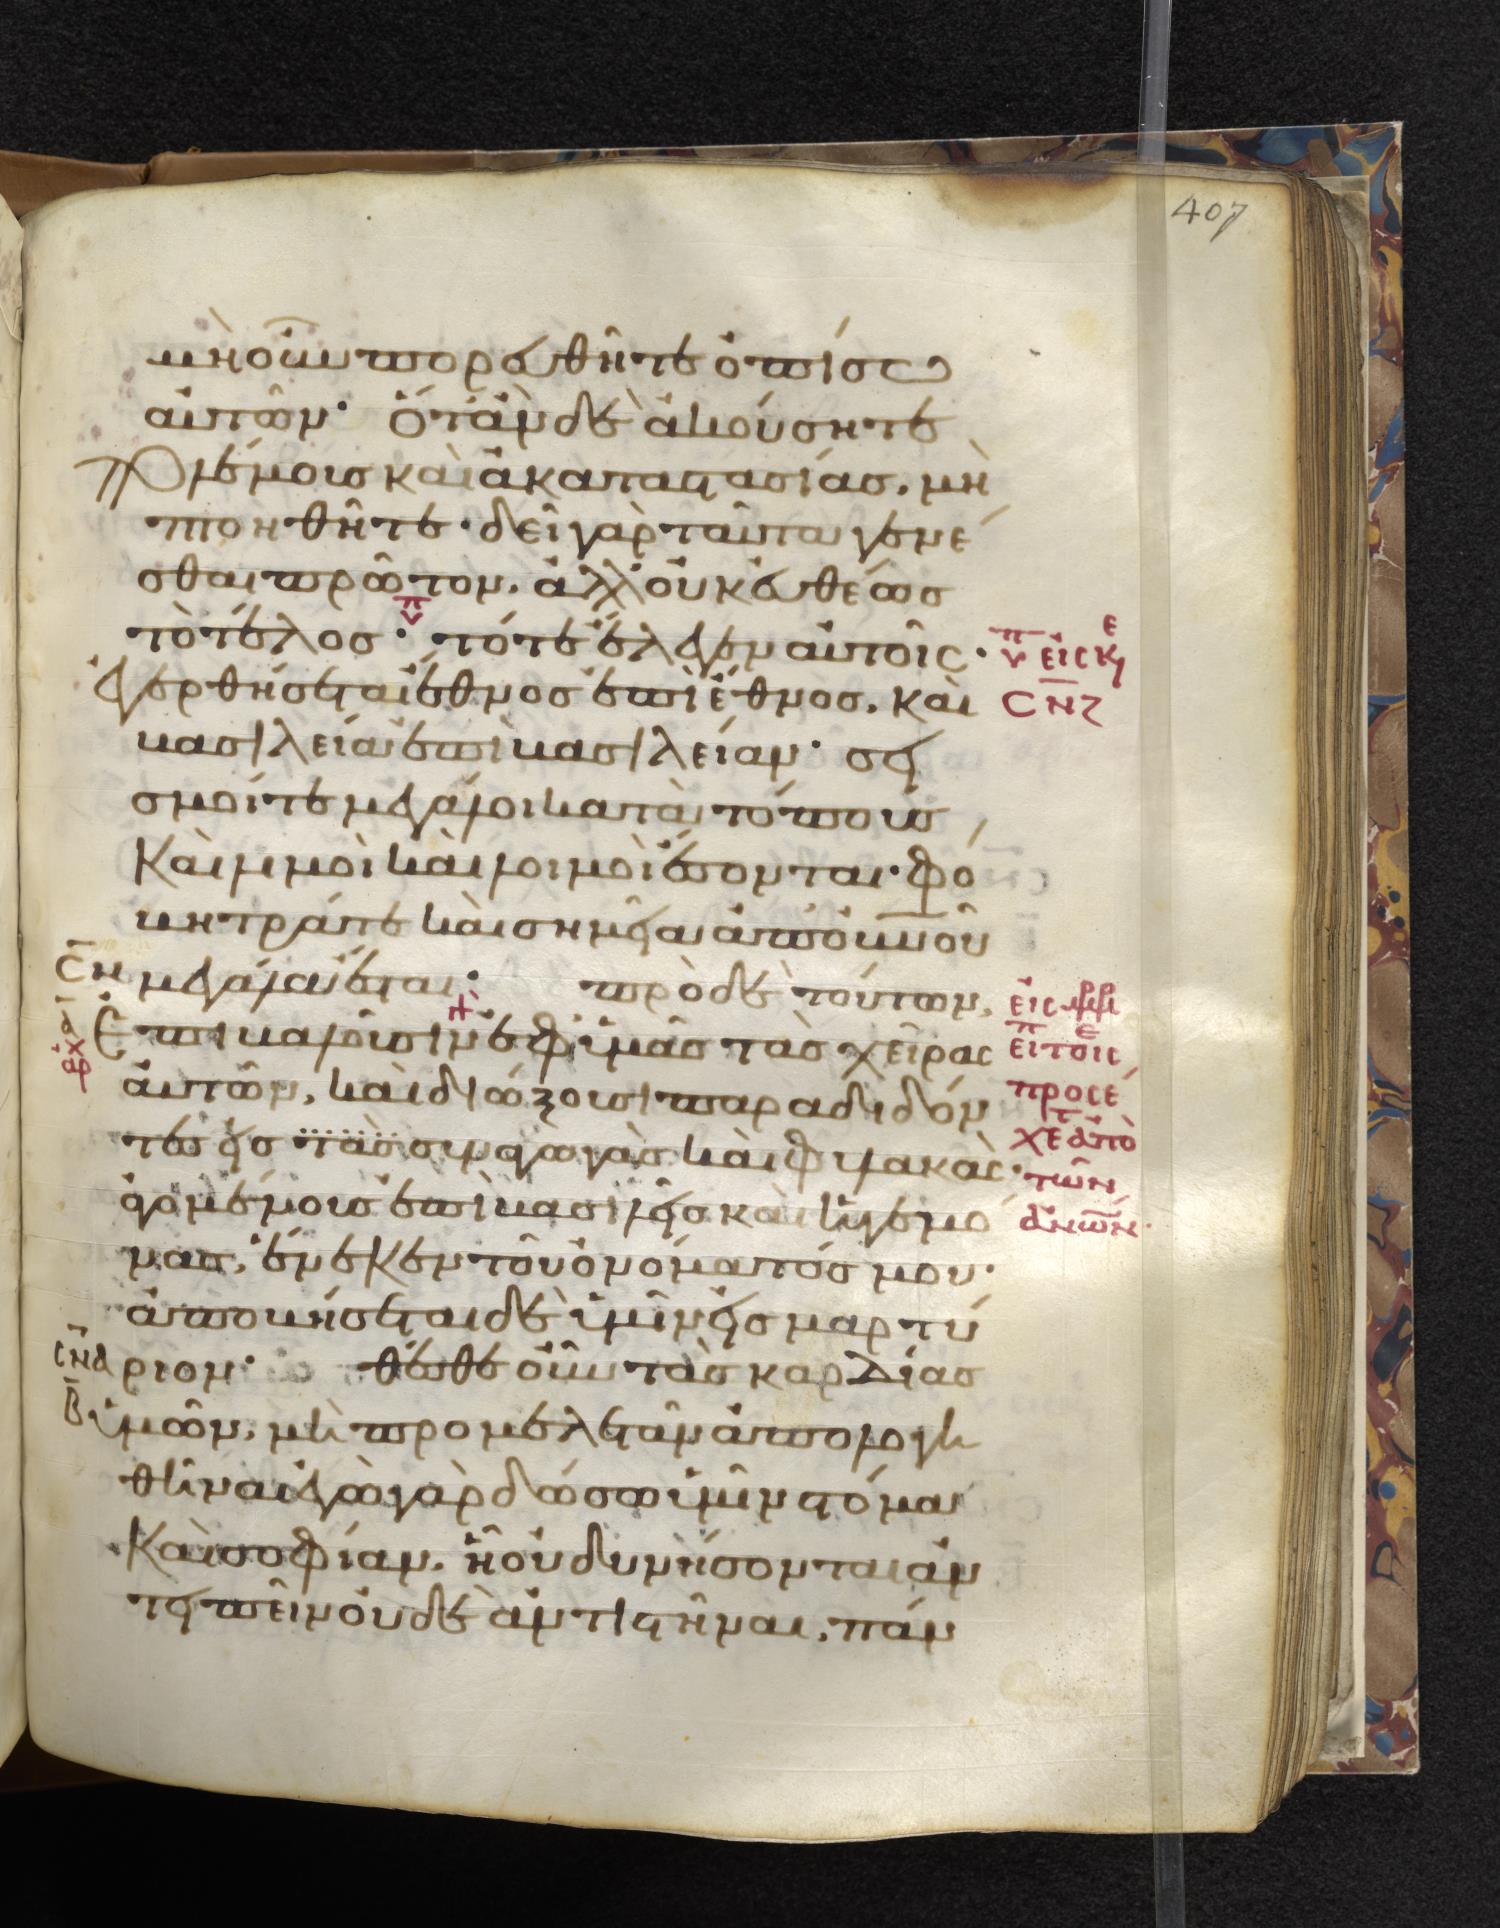 407
μὴ οὖν πορευθῆτε ὀπίσω
αὐτῶν· ὅταν δὲ ἀκούσητε
πολέμους καὶ ἀκαταστασίας, μὴ
πτοηθῆτε· δεῖ γὰρ ταῦτα γενέ
σθαι πρῶτον, ἀλλ' οὐκ εὐθέως
τὸ τέλος· τότε ἔλεγεν αὐτοῖς·
ἐγερθήσεται ἔθνος ἐπὶ ἔθνος, καὶ
βασιλεία ἐπὶ βασιλείαν· σει
σμοί τε μεγάλοι κατὰ τόπους
καὶ λιμοὶ καὶ λοιμοὶ ἔσονται· φό
βητρά τε καὶ σημεῖα ἀπὸ οὐνοῦ
μεγάλα ἔσται· πρὸ δὲ τούτων,
ἐπιβαλοῦσιν ἐφ' ὑμᾶς τὰς χεῖρας
αὐτῶν, καὶ διώξουσι παραδιδόν
τες εἰς τὰς συναγωγὰς καὶ φυλακὰς·
ἀγομένους ἐπὶ βασιλεῖς καὶ ἡγεμό
νας, ἕνεκεν τοῦ ὀνόματός μου·
ἀποβήσεται δὲ ὑμῖν εἰς μαρτύ
ριον· θέσθε οὖν τὰς καρδίας
ὑμῶν, μὴ προμελετᾶν ἀπολογη
θῆναι ἐγὼ γὰρ δώσω ὑμῖν στόμα
καὶ σοφίαν, ᾗ οὐ δυνήσονται ἀν
τειπεῖν οὐδὲ ἀντιστῆναι, πάν
προσέ
χε ἀπὸ
τῶν
ἀνων